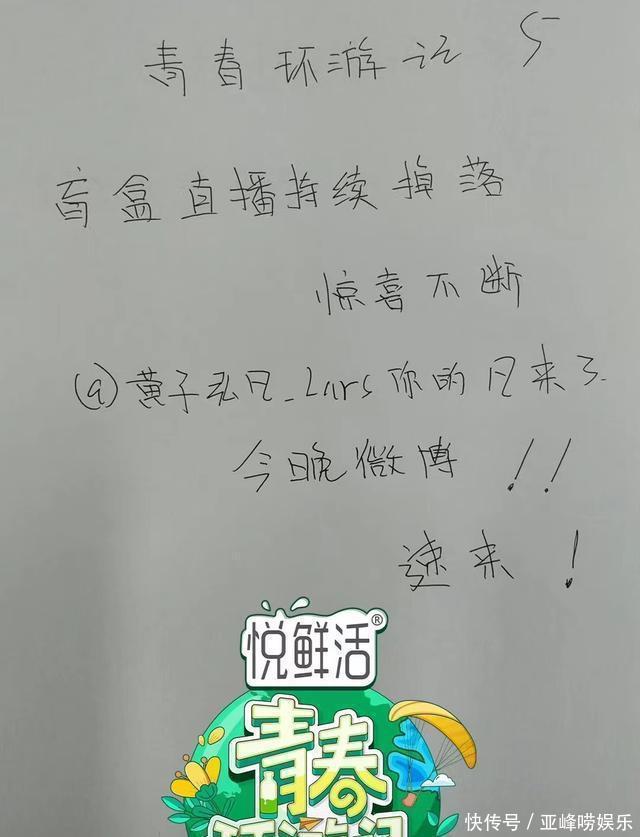 青春环游记 5
盲盒直播持续掉落
惊喜不断
@黄子弘凡_Lars 你的凡来了.
今晚微博!!
速来!
悦鲜活®
青春
环游记
快传号/亚峰唠娱乐